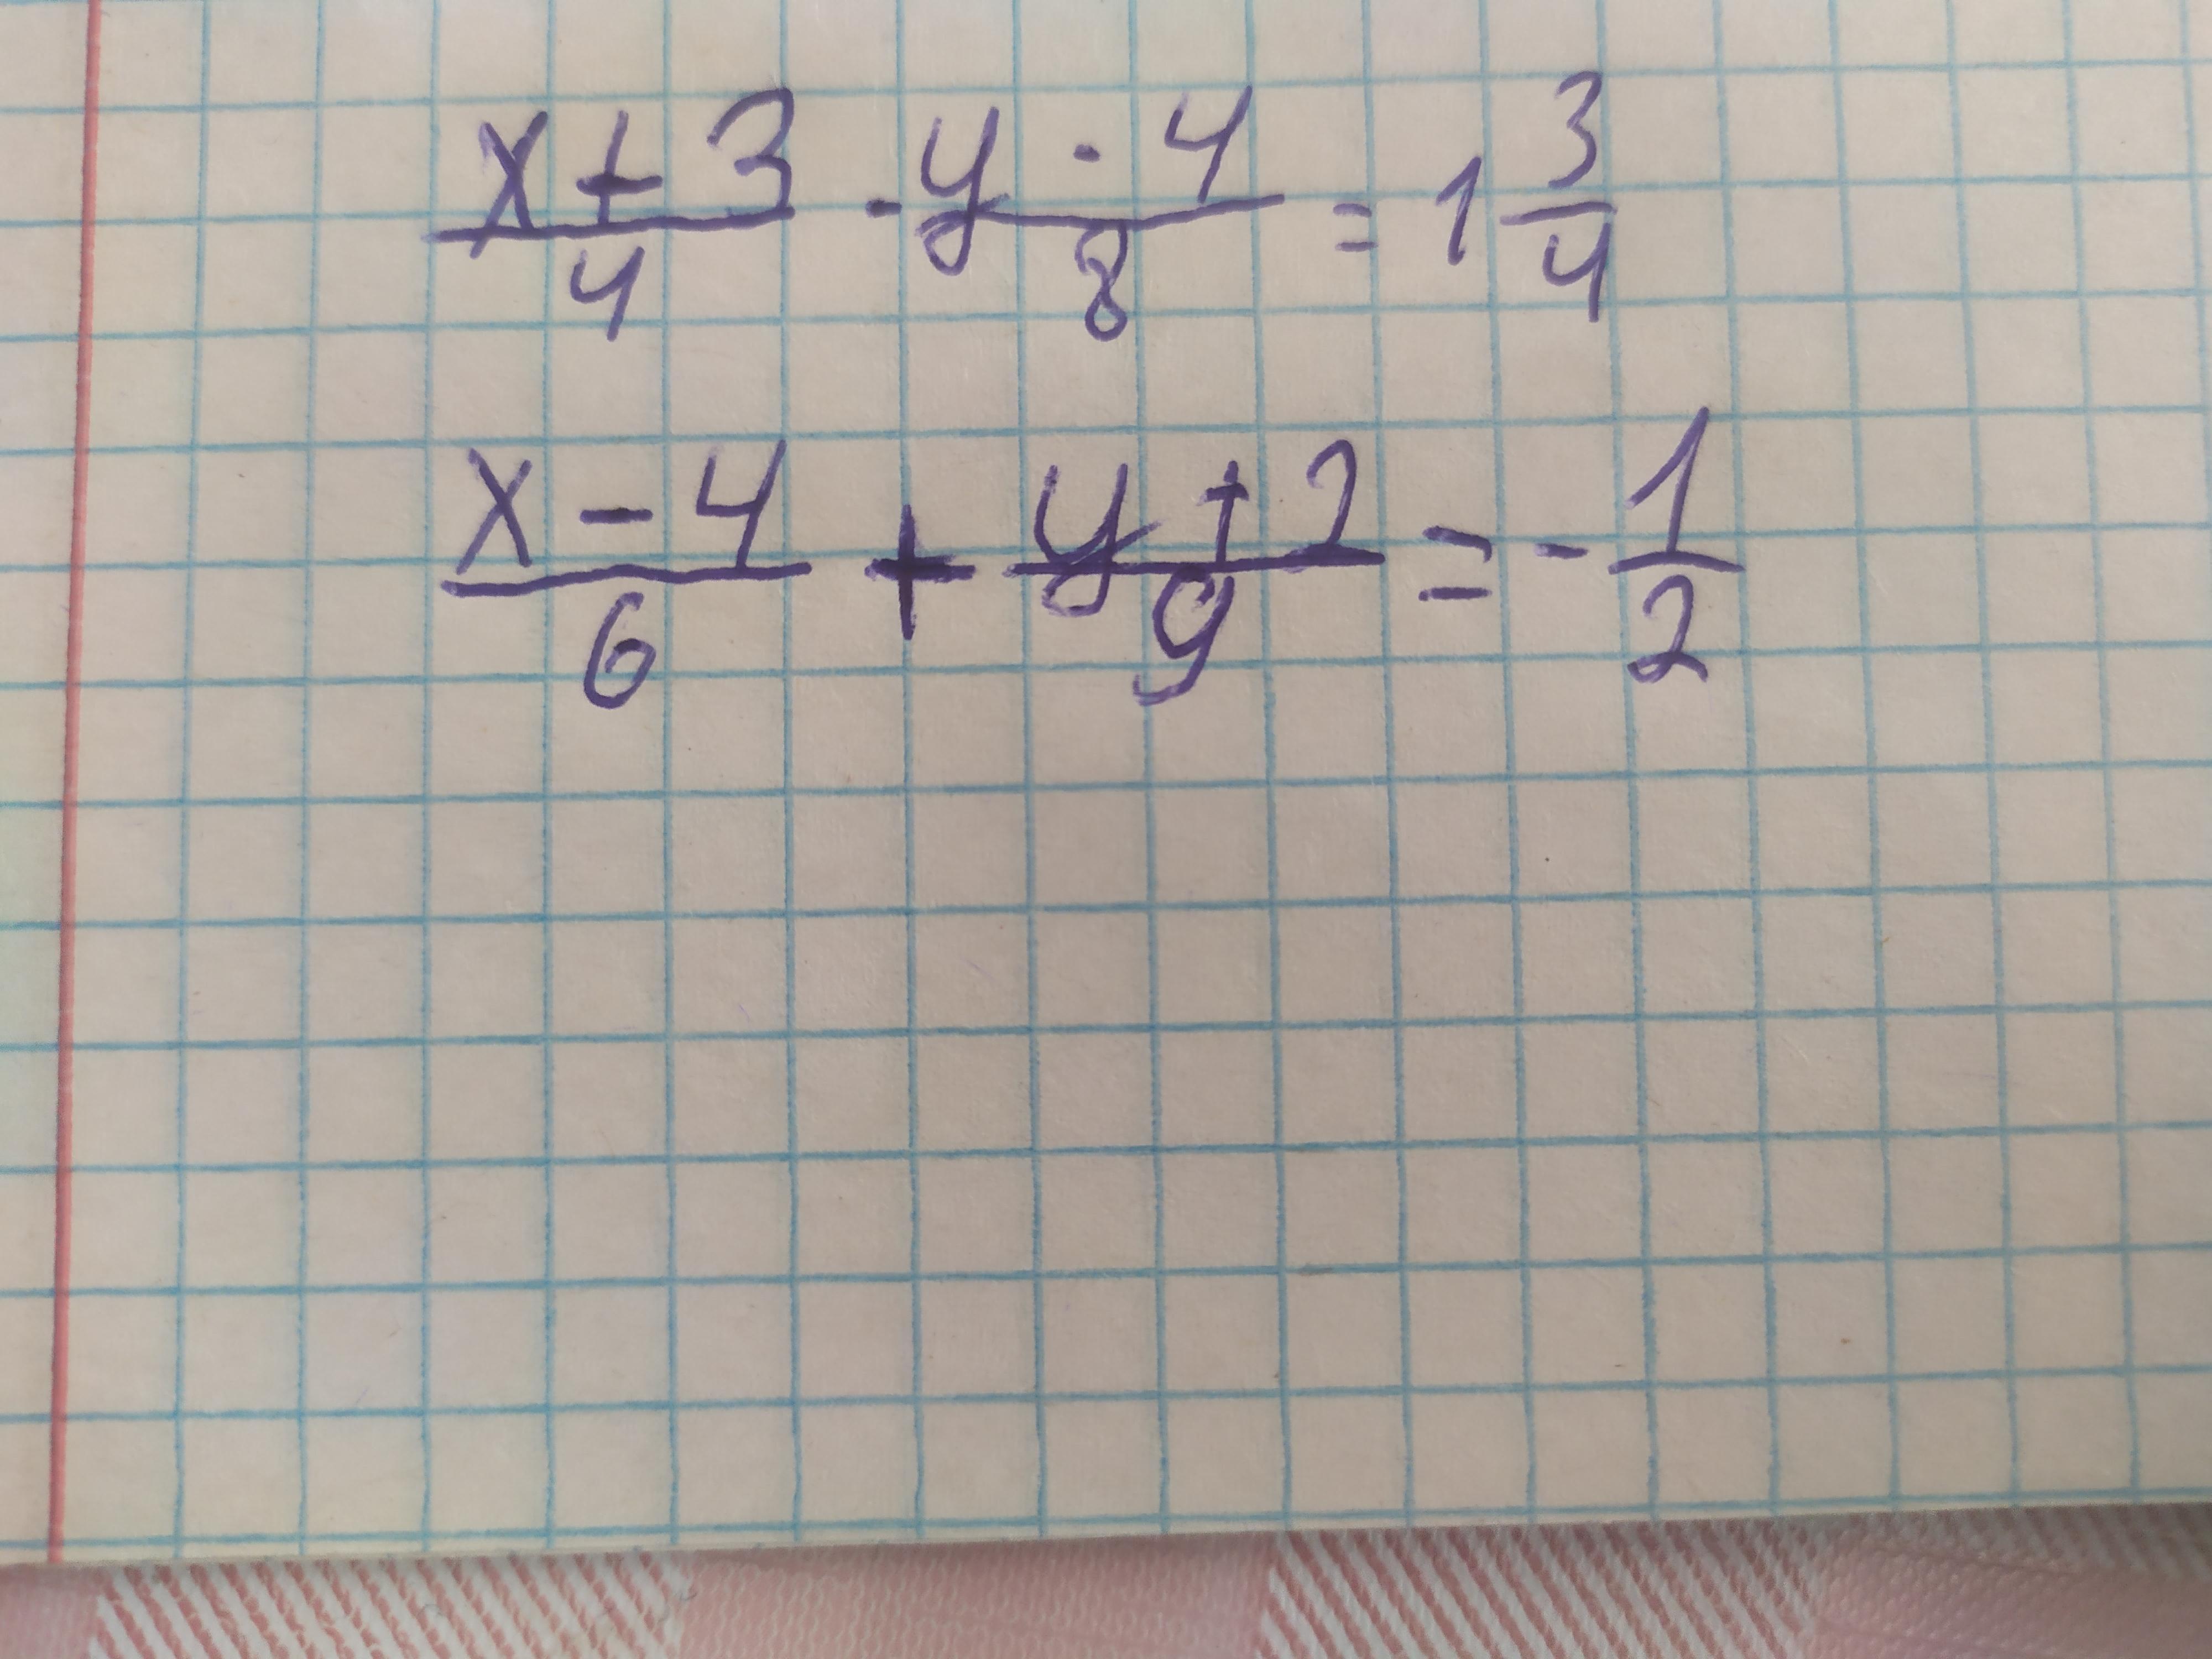 (x + 3)/4 - (y - 4)/8 = 1 3/4
(x - 4)/6 + (y + 2)/9 = - 1/2